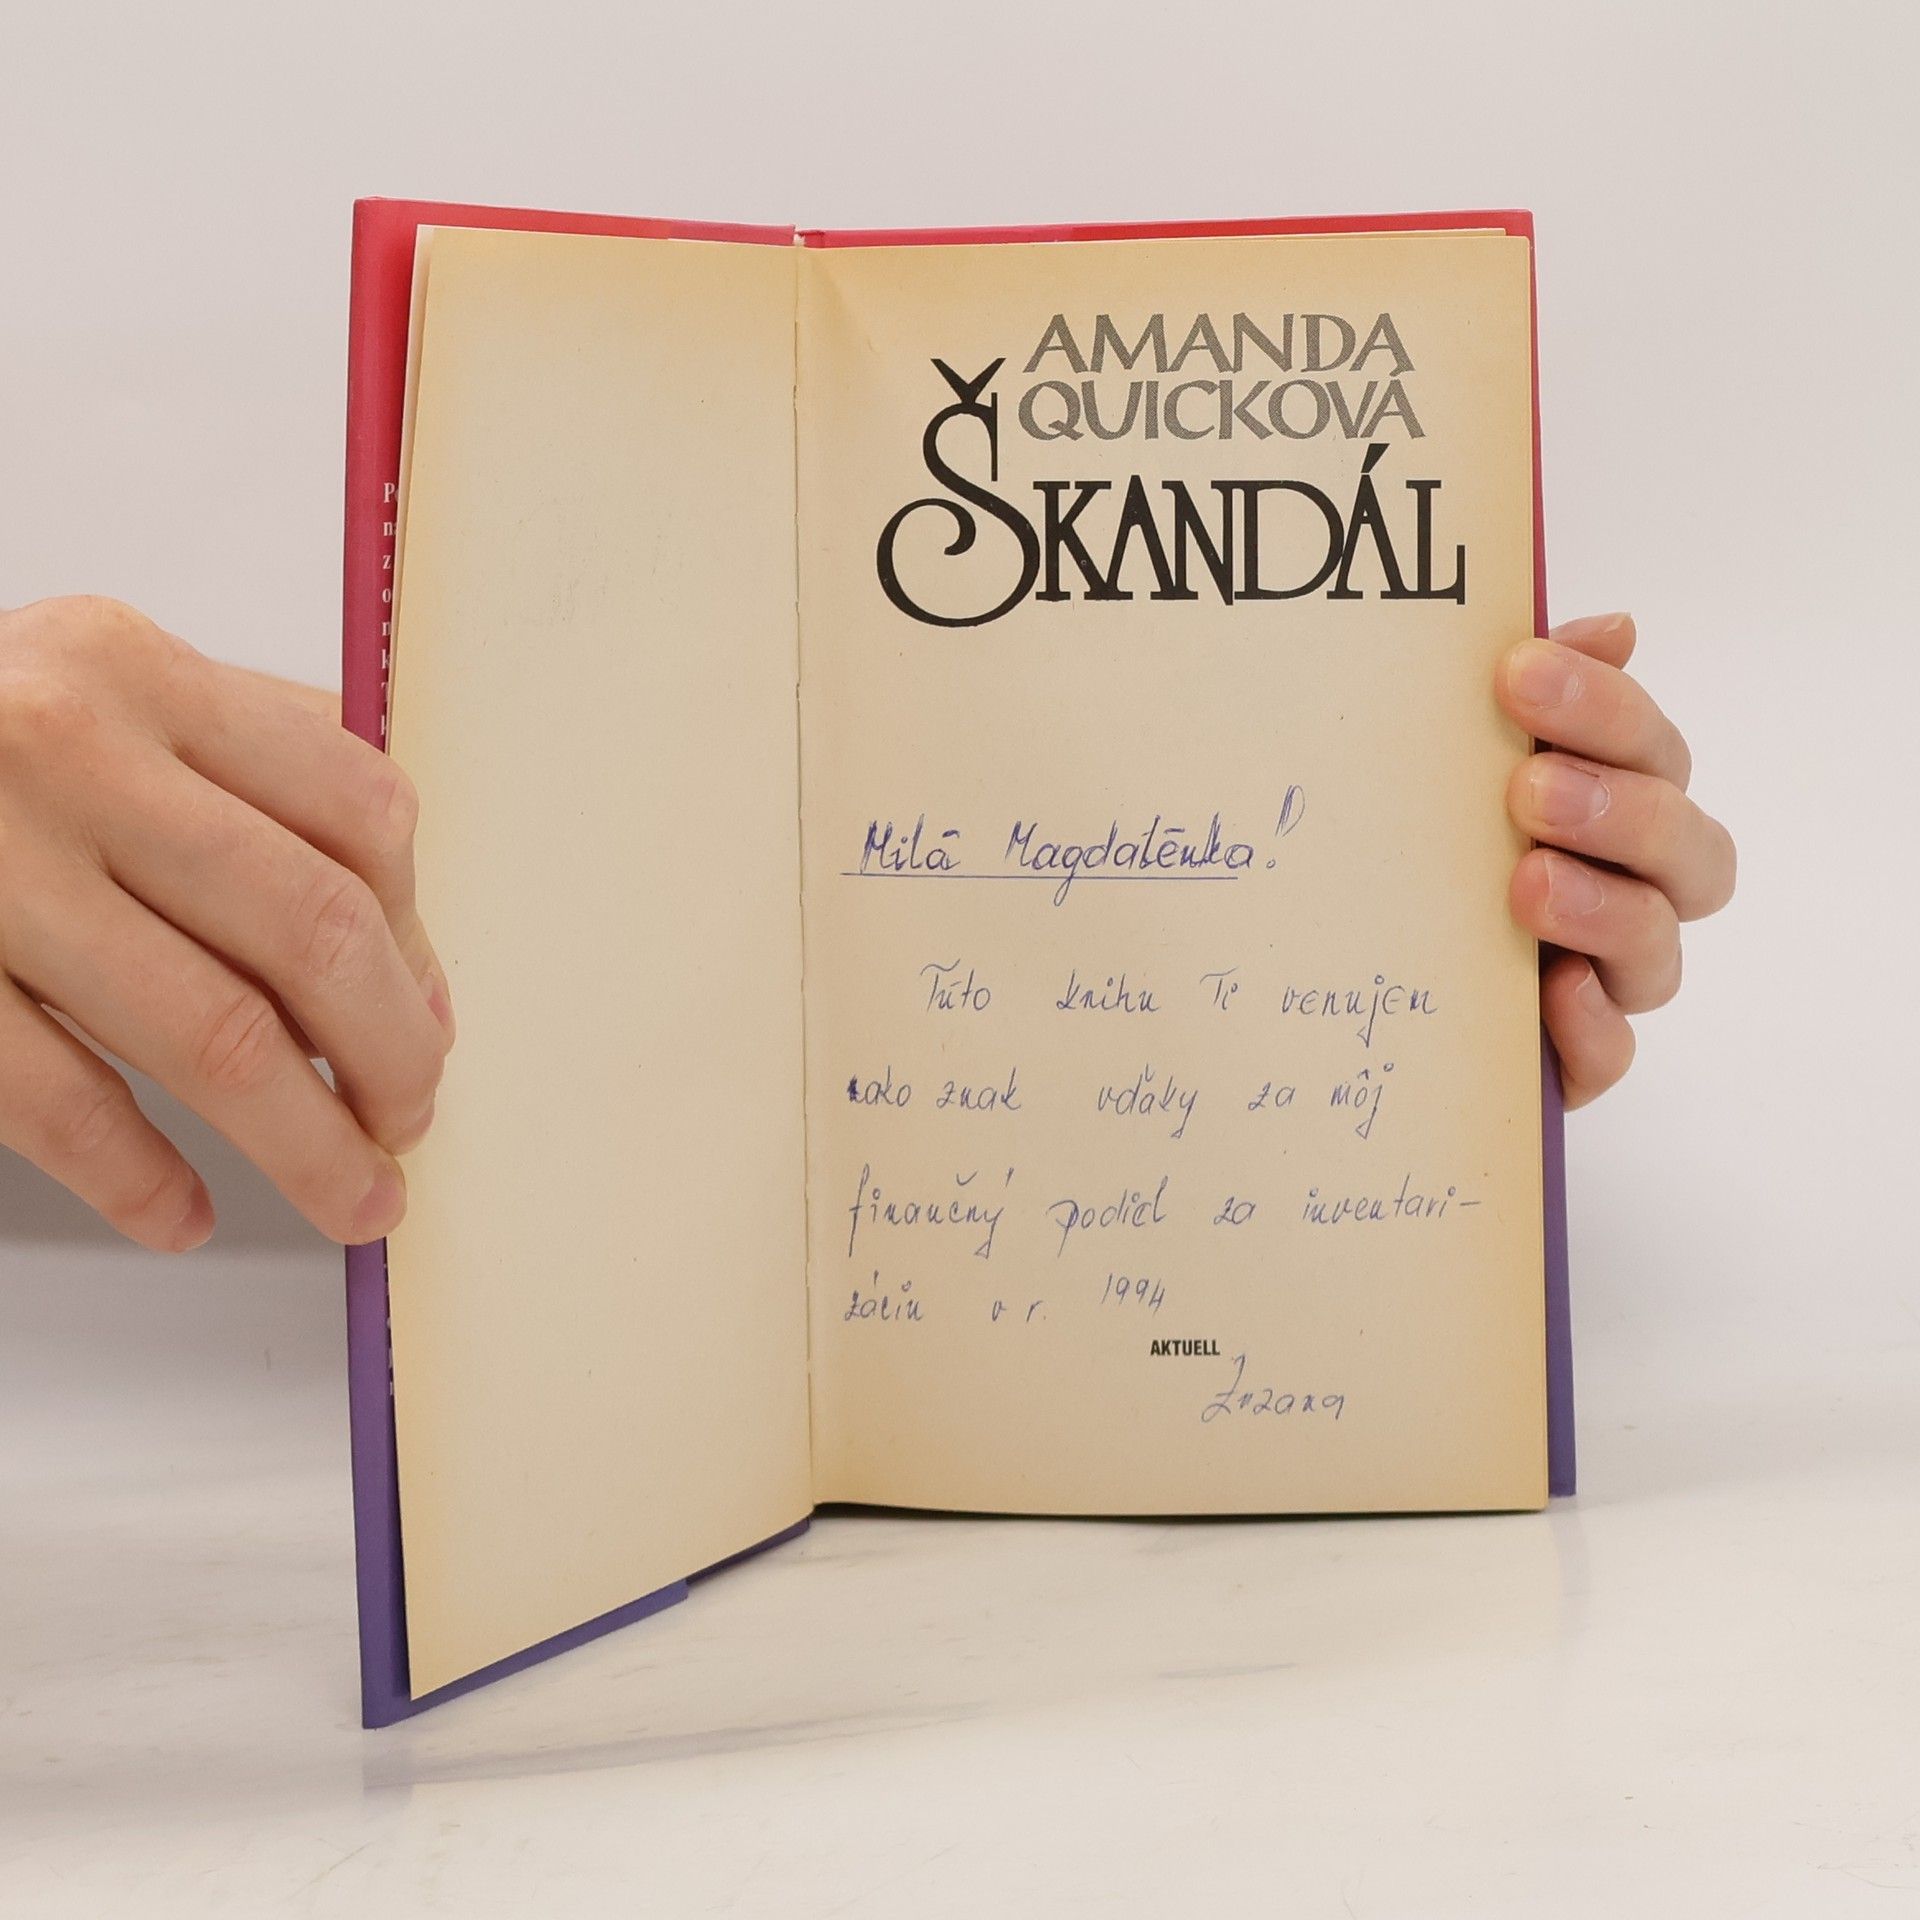 AMANDA
QUICKOVÁ
ŠKANDÁL
Milá Magdalénka!
Túto knihu Ti venujem
ako znak vďaky za môj
finančný podiel za inventari-
záciu v r. 1994
AKTUELL
Zuzana